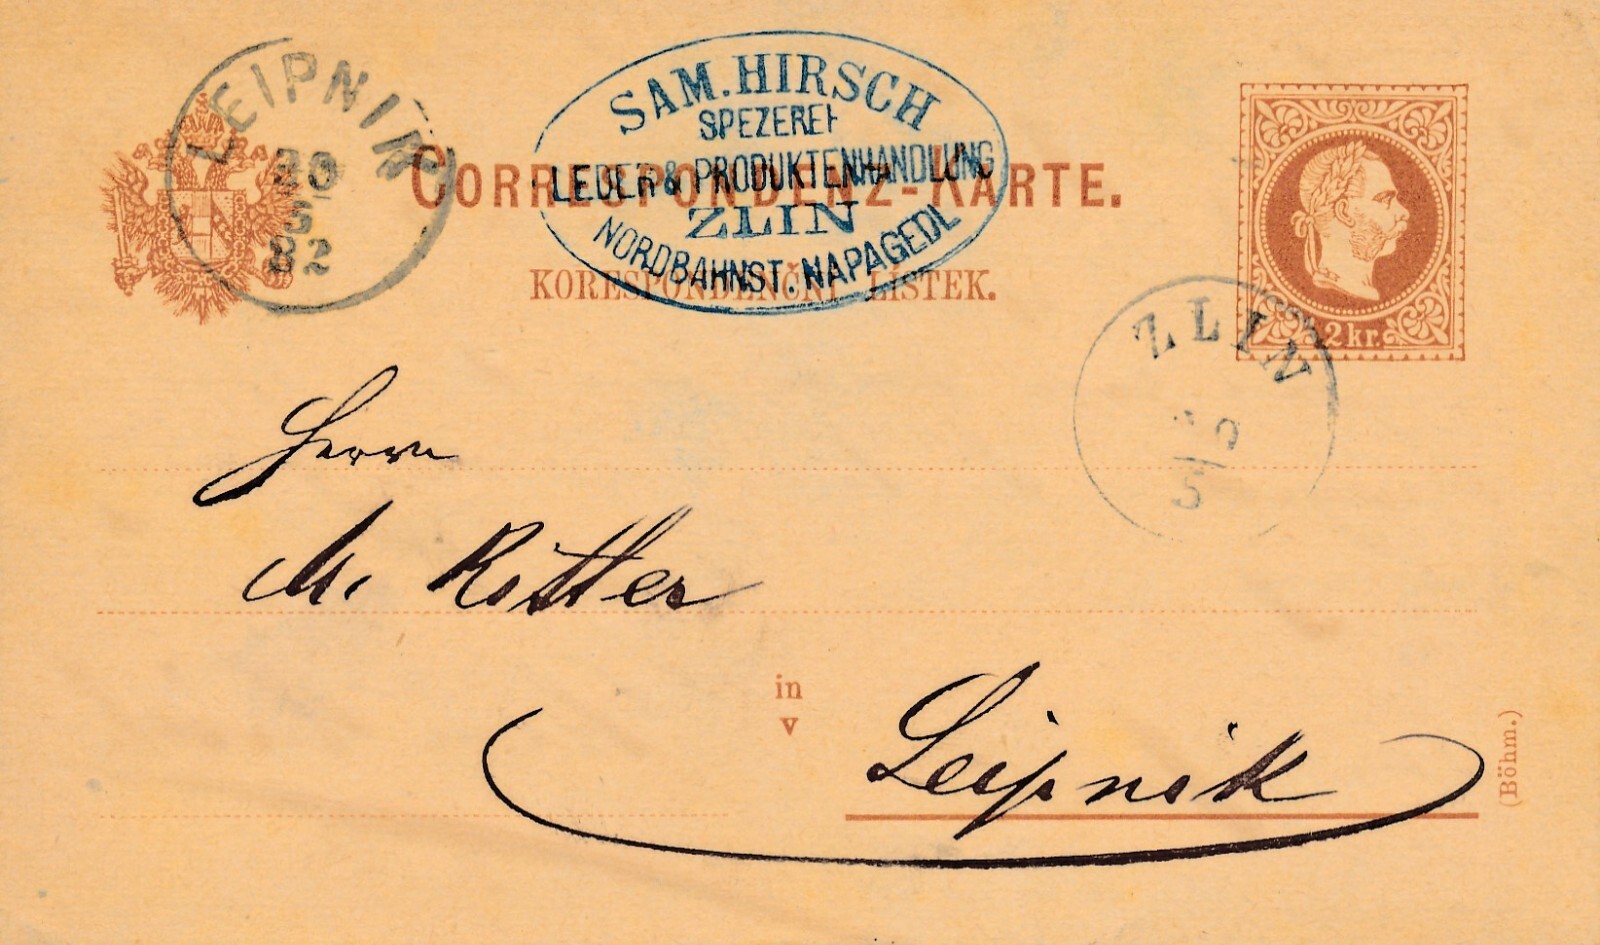 LEIPNIK
20
5
82
SAM. HIRSCH
SPEZEREI
LEDER & PRODUKTENHANDLUNG
ZLIN
NORDBAHNST. NAPAGEDL
CORRESPONDENZ-KARTE.
KORESPONDENČNÍ LÍSTEK.
2 kr.
ZLIN
5
Herrn
M. Ritter
in
v
Leipnik
(Böhm.)